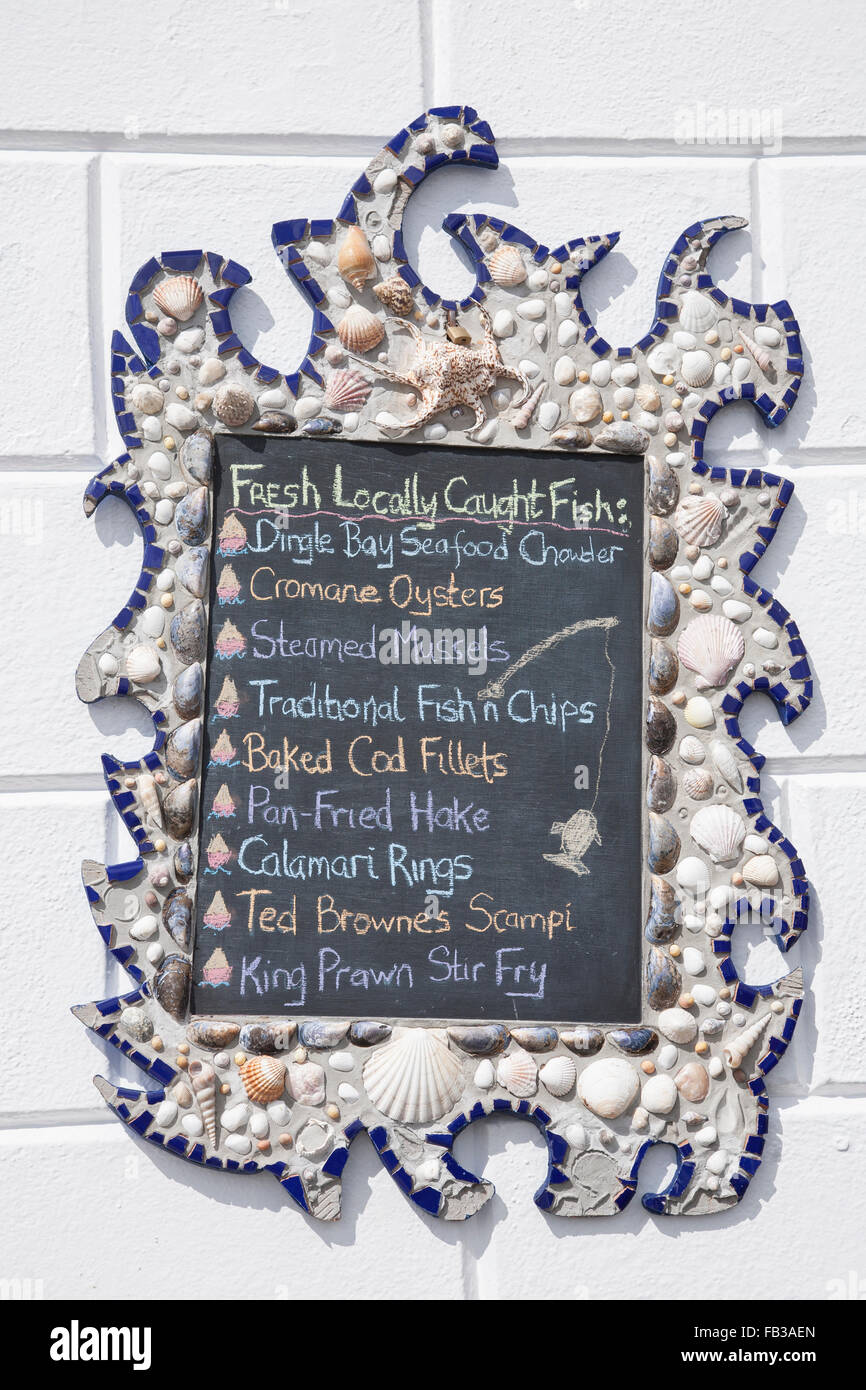 Fresh Locally Caught Fish:
Dingle Bay Seafood Chowder
Cromane Oysters
Steamed Mussels
Traditional Fish n Chips
Baked Cod Fillets
Pan-Fried Hake
Calamari Rings
Ted Browne's Scampi
King Prawn Stir Fry
alamy stock photo
FB3AEN
www.alamy.com